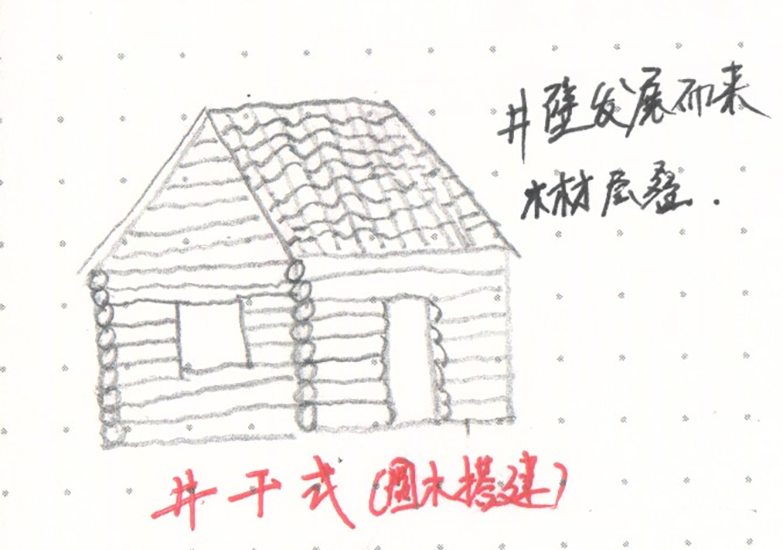 井壁发展而来
木材层叠.
井干式(圆木搭建)